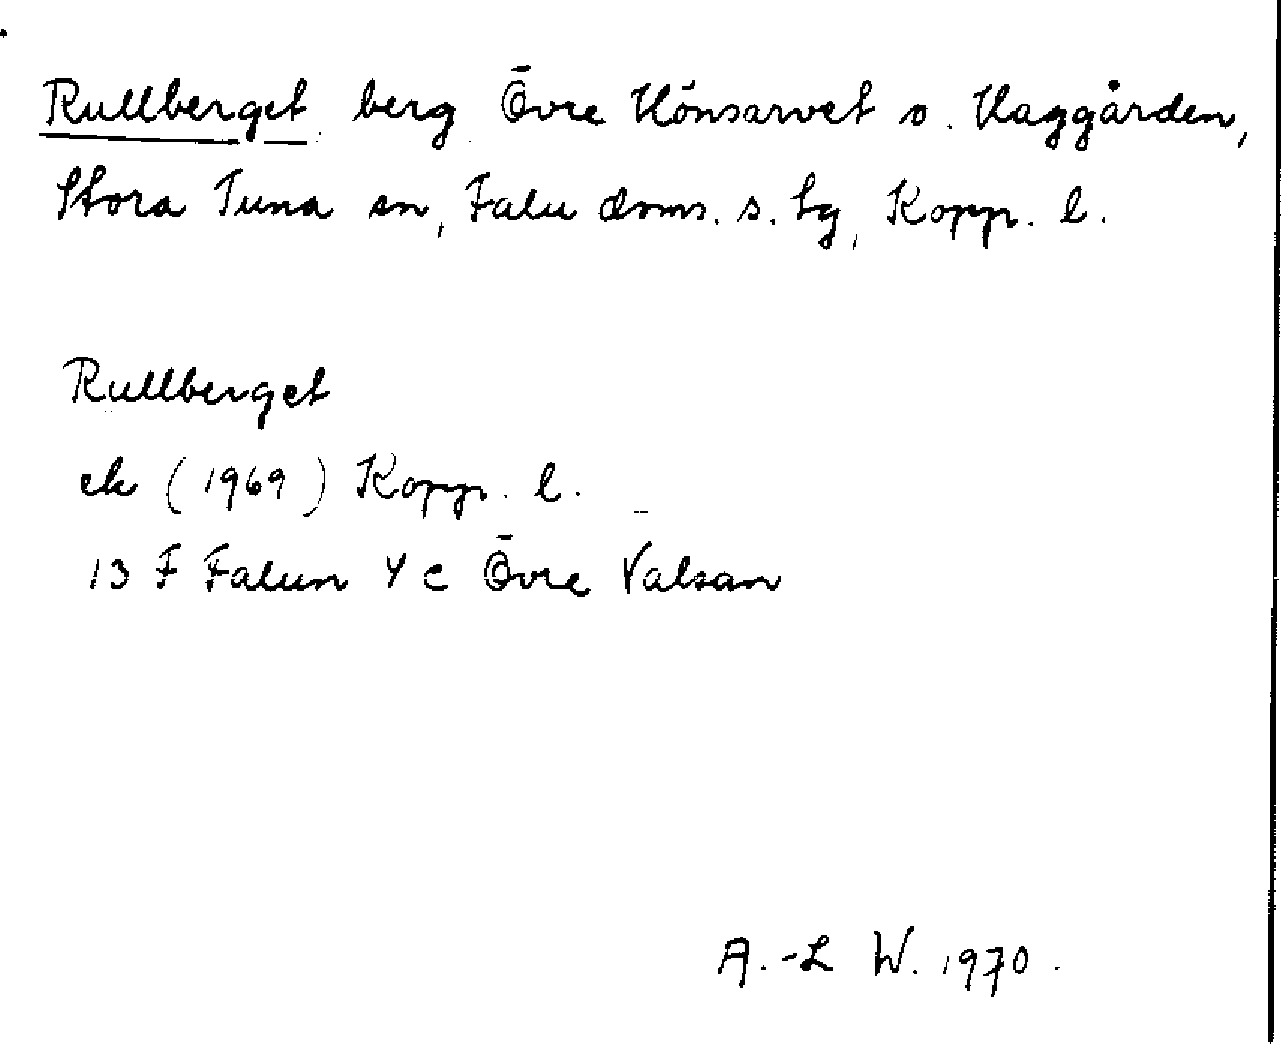 Rullberget berg Övre Hönsarvet o. Haggården,
Stora Tuna sn, Falu doms. s. tg, Kopp. l.
Rullberget
ek (1969) Kopp. l.
13 F Falun 4 c Övre Valsan
A.-L W. 1970.